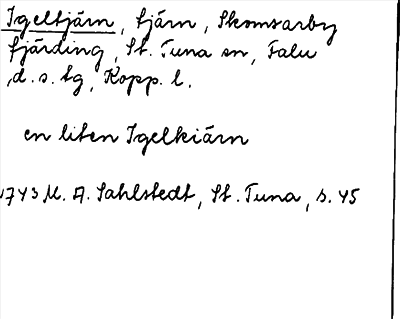 Igeltjärn, tjärn, Skomsarby
fjärding, St. Tuna sn, Falu
d. s. tg, Kopp. l.
en liten Igelkiärn
1743 M. A. Sahlstedt, St. Tuna, s. 45